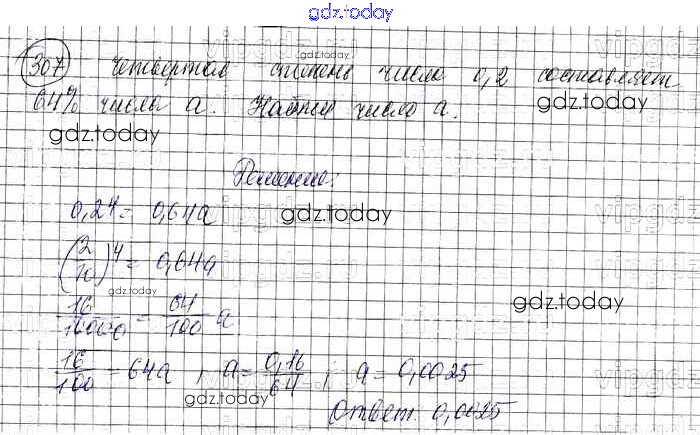 gdz.today
307 Четвертая степень числа 0,2 составляет
64% числа a. Найти число a.
gdz.today
gdz.today
gdz.today
Решение:
0,2⁴ = 0,64a
gdz.today
(2/10)⁴ = 0,64a
gdz.today
16/10000 = 64/100 a
gdz.today
16/100 = 64a ; a = 0,16/64 ; a = 0,0025
gdz.today
Ответ: 0,0025